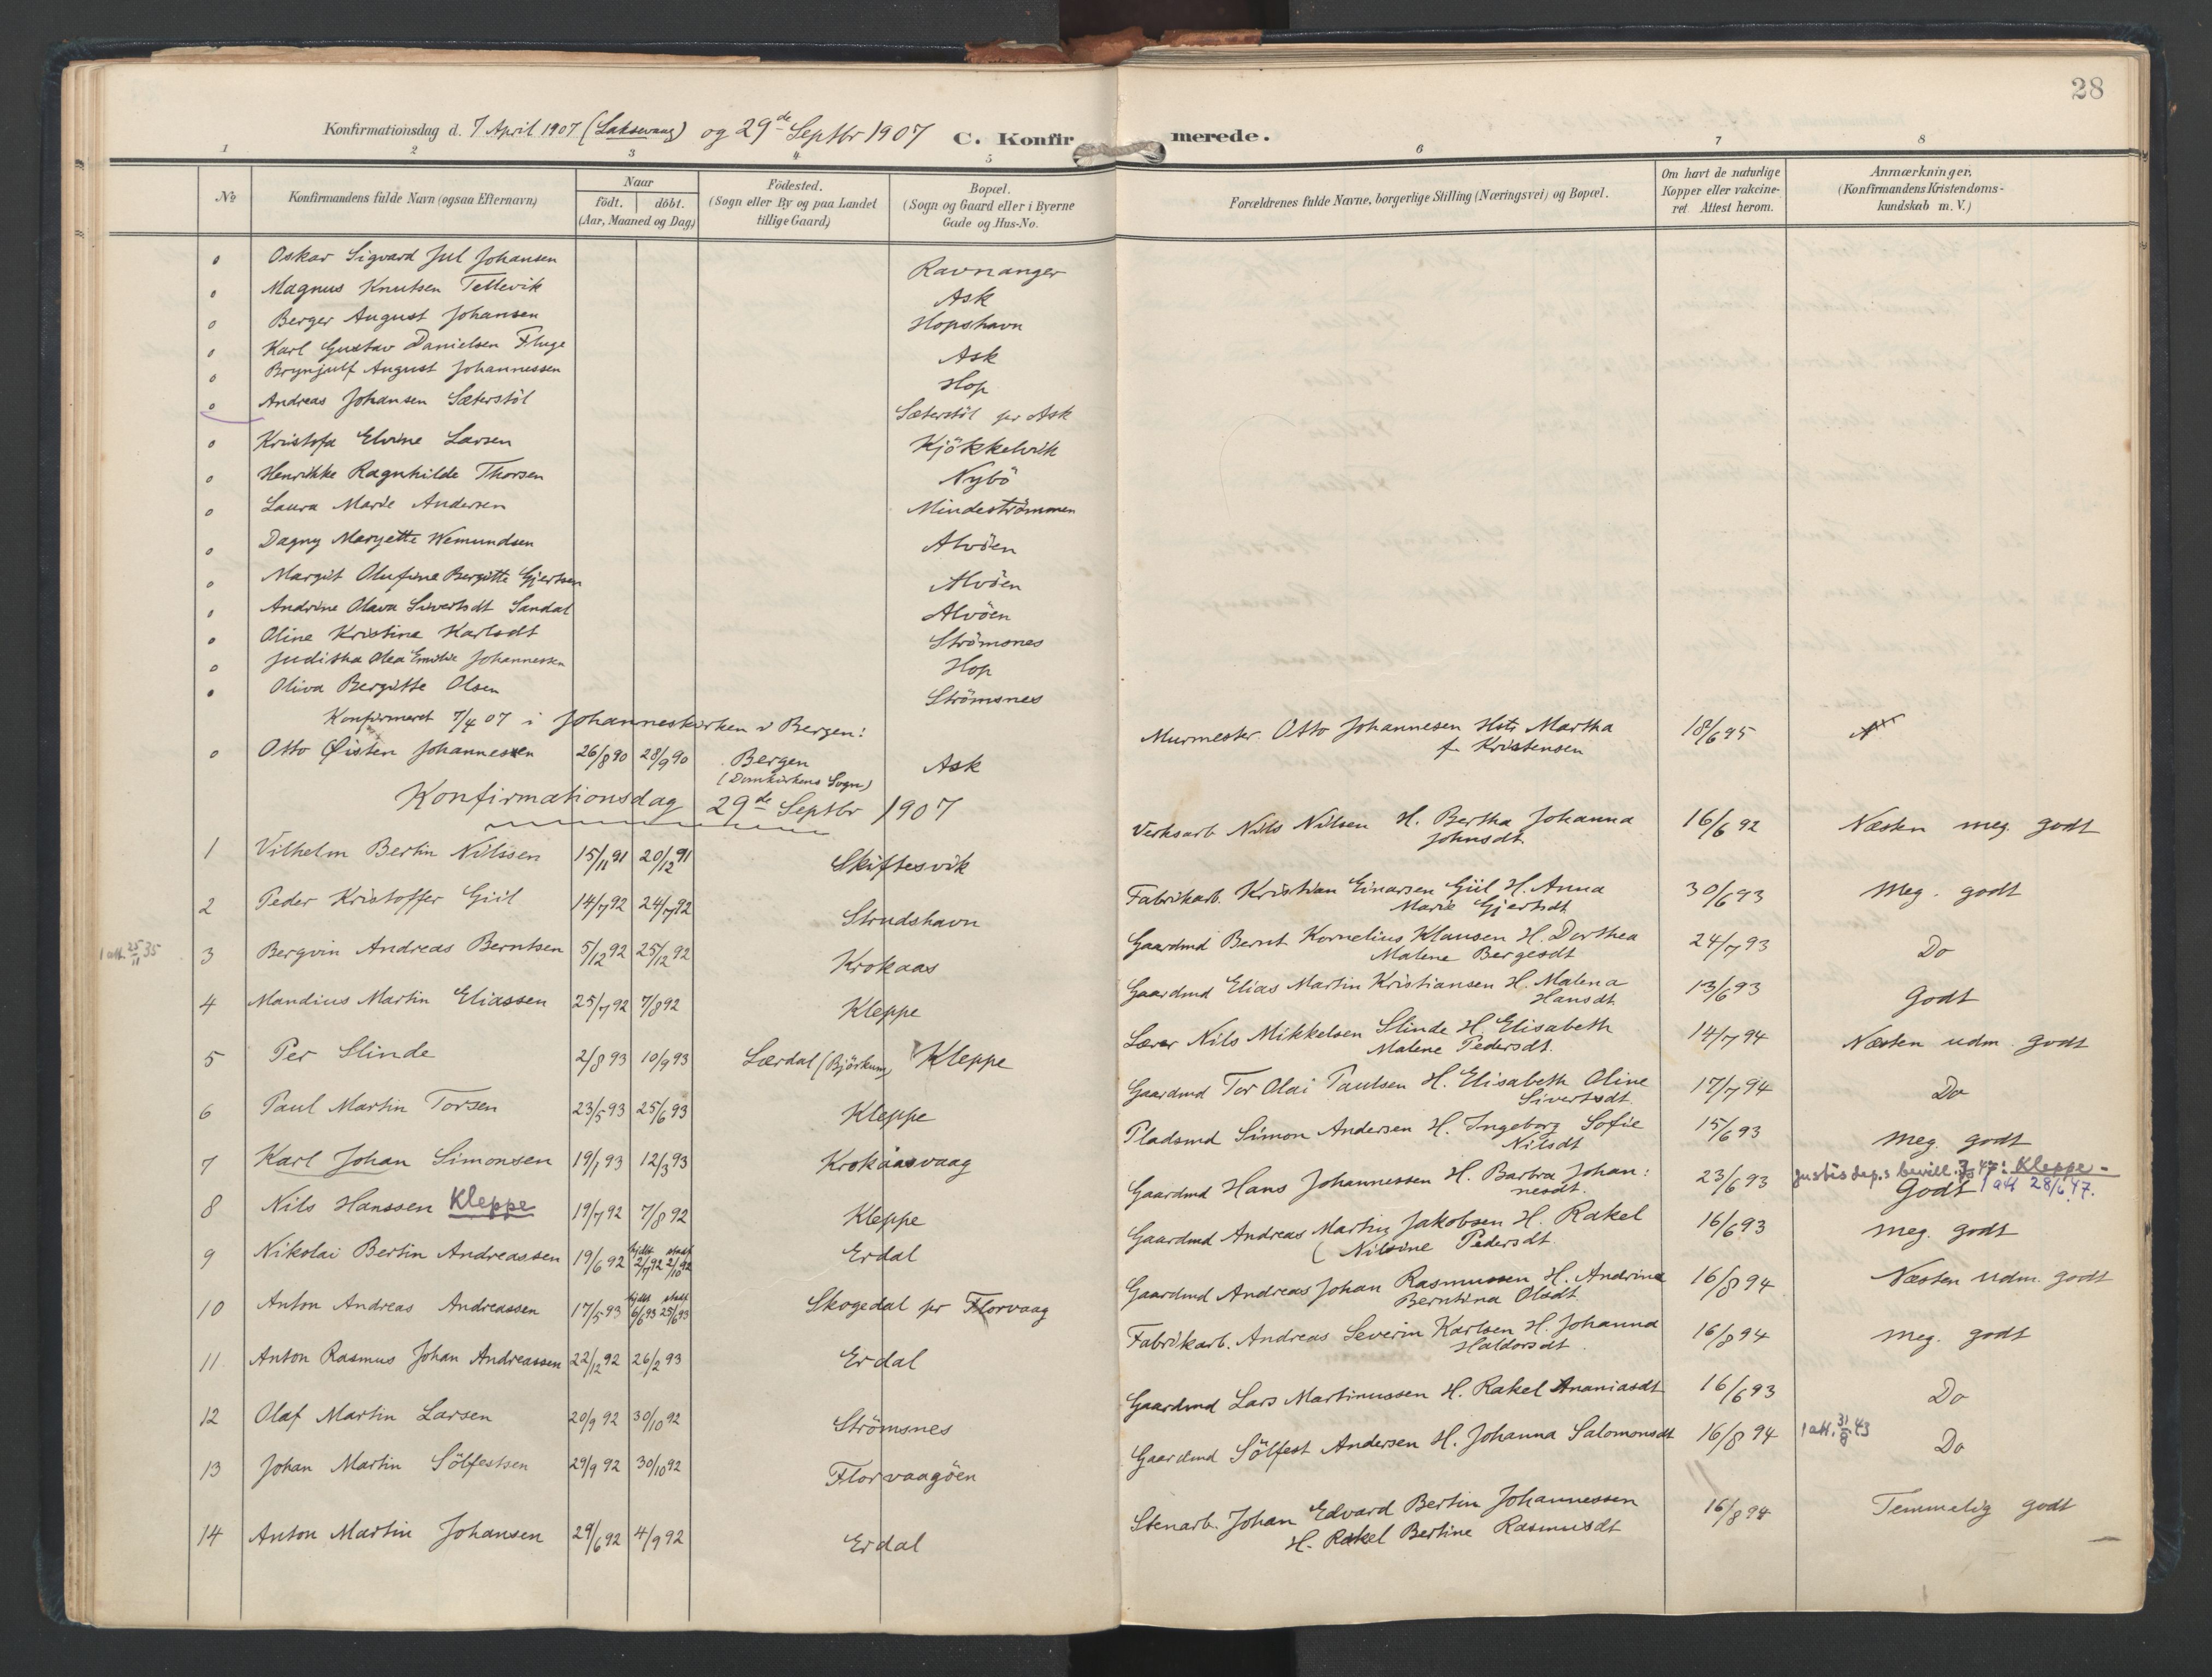 28
Konfirmationsdag d. 7 April 1907 (Laksevaag) og 29de Septbr 1907 C. Konfirmerede.
1 2 3 4 5 6 7 8
No
Konfirmandens fulde Navn (ogsaa Efternavn)
Naar
födt. döbt.
(Aar, Maaned og Dag)
Födested.
(Sogn eller By og paa Landet
tillige Gaard)
Bopæl.
(Sogn og Gaard eller i Byerne
Gade og Hus-No.
Forældrenes fulde Navne, borgerlige Stilling (Næringsvei) og Bopæl.
Om havt de naturlige
Kopper eller vakcine-
ret. Attest herom.
Anmærkninger.
(Konfirmandens Kristendoms-
kundskab m. V.)
o Oskar Sigvard Jul Johansen Ravnanger
o Magnus Knutsen Tellevik Ask
o Berger August Johansen Hopshavn
o Karl Gustav Danielsen Fluge Ask
o Brynjulf August Johannessen Hop
o Andreas Johansen Sæterstöl Sæterstöl pr Ask
o Kristofa Elvine Larsen Kjökkelvik
o Henrikke Ragnhilde Thorsen Nybö
o Laura Marie Andersen Mindeströmmen
o Dagny Marjette Wemundsen Alvöen
o Margit Olufine Bergitte Gjertsen Alvöen
o Andrine Olava Sivertsdt Sandal Alvöen
o Oline Kristine Karlsdt Strömsnes
o Juditha Olea Emilie Johannessen Hop
o Oliva Bergitte Olsen Strömsnes
Konfirmeret 7/4 07 i Johanneskirken i Bergen:
o Otto Øisten Johannessen 26/8 90 28/9 90 Bergen Ask Murmester Otto Johannesen Hst: Martha 18/6 95
(Domkirkens Sogn) f. Kristensen
Konfirmationsdag 29de Septbr 1907
1 Vilhelm Bertin Nilssen 15/11 91 20/12 91 Skiftesvik Verksarb. Nils Nilsen H. Bertha Johanna 16/6 92 Næsten meg. godt
Johnsdt.
2 Peder Kristoffer Giil 14/7 92 24/7 92 Strudshavn Fabrikarb. Kristian Einarsen Giil H. Anna 30/6 93 Meg. godt
Marie Gjertsdt.
1 att. 25/11 35 3 Bergvin Andreas Berntsen 5/12 92 25/12 92 Krokaas Gaardmd Bernt Kornelius Klausen H. Dorthea 24/7 93 Do
Malene Bergesdt
4 Mandius Martin Eliassen 25/7 92 7/8 92 Kleppe Gaardmd Elias Martin Kristiansen H. Malena 13/6 93 Godt
Hansdt.
5 Per Slinde 2/8 93 10/9 93 Lærdal (Björkum) Kleppe Lærer Nils Mikkelsen Slinde H. Elisabeth 14/7 94 Næsten udm. godt
Malene Pedersdt.
6 Paul Martin Torsen 23/5 93 25/6 93 Kleppe Gaardmd Tor Olai Paulsen H. Elisabeth Oline 17/7 94 Do
Sivertsdt.
7 Karl Johan Simonsen 19/1 93 12/3 93 Krokaasvaag Pladsmd Simon Andersen H. Ingeborg Sofie 15/6 93 meg. godt
Nilsdt
8 Nils Hanssen Kleppe 19/7 92 7/8 92 Kleppe Gaardmd Hans Johannessen H. Barbra Johan: 23/6 93 Godt
nesdt. Kleppe - 1 att 28/6.47.
9 Nikolai Bertin Andreassen 19/6 92 hjdt 2/7 92 stadf 2/10 92 Erdal Gaardmd Andreas Martin Jakobsen H. Rakel 16/6 93 meg. godt
( Nilsine Pedersdt.
10 Anton Andreas Andreassen 17/5 93 hjdt 6/6 93 stadf 25/6 93 Skogedal pr Florvaag Gaardmd Andreas Johan Rasmussen H. Andrina 16/8 94 Næsten udm. godt
Berntina Olsdt.
11 Anton Rasmus Johan Andreassen 22/12 92 26/2 93 Erdal Fabrikarb. Andreas Severin Karlsen H. Johanna 16/8 94 meg. godt
Haldorsdt.
12 Olaf Martin Larsen 20/9 92 30/10 92 Strömsnes Gaardmd Lars Martinussen H. Rakel Ananiasdt 16/6 93 Do
13 Johan Martin Sölfestsen 29/9 92 30/10 92 Florvaagöen Gaardmd Sölfest Andersen H. Johanna Salomonsdt 16/8 94 1 att. 31/8 43 Do
14 Anton Martin Johansen 29/6 92 4/9 92 Erdal Stenarb. Johan Edvard Bertin Johannessen 16/8 94 Temmelig godt
H. Rakel Bertine Rasmusdt